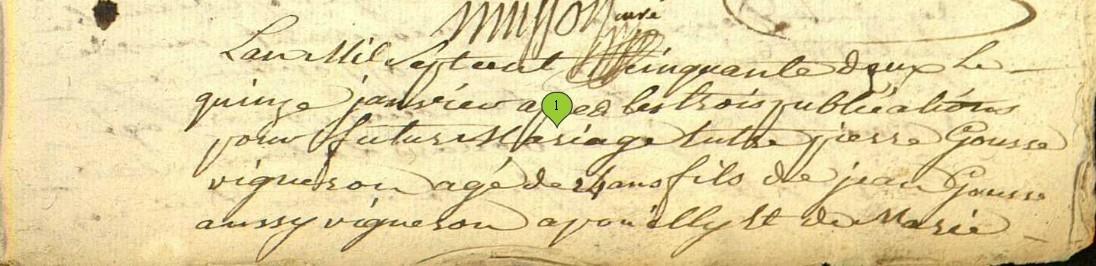 musson curé
Lan Mil Septcent Cinquante deux Le
quinze janvier apres les trois publications
pour futur Mariage entre pierre Gousse
vigneron agé de 24 ans fils de jean Gousse
aussy vigneron a pouilly St de Marie